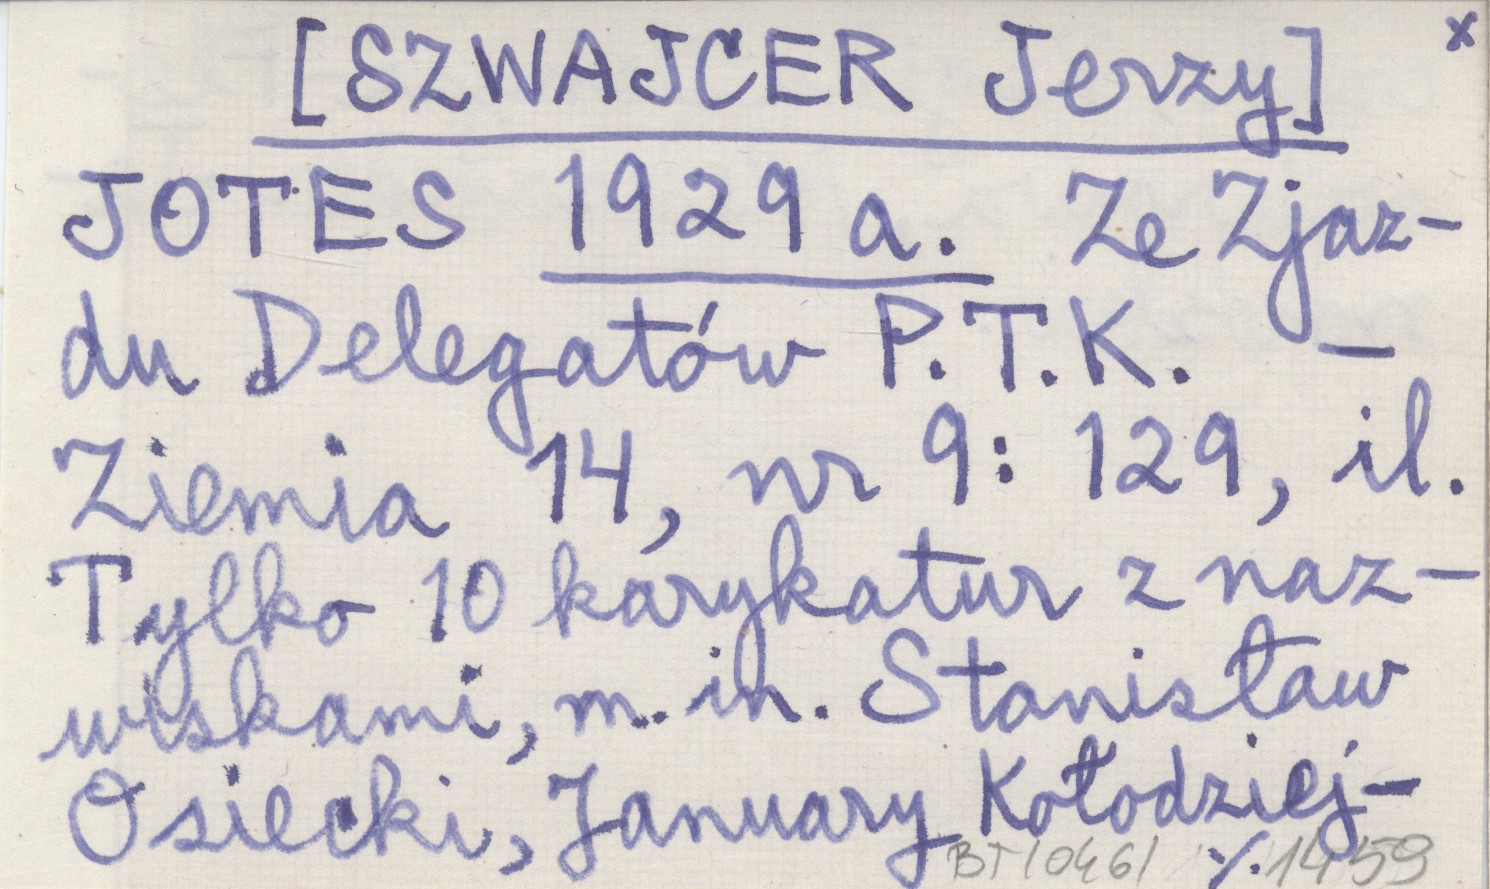 x
[SZWAJCER Jerzy]
JOTES 1929 a. Ze Zjaz-
du Delegatów P.T.K. –
Ziemia 14, nr 9: 129, il.
Tylko 10 karykatur z naz-
wiskami, m. in. Stanisław
Osiecki, January Kołodziej-
BT10461 ./. 1459